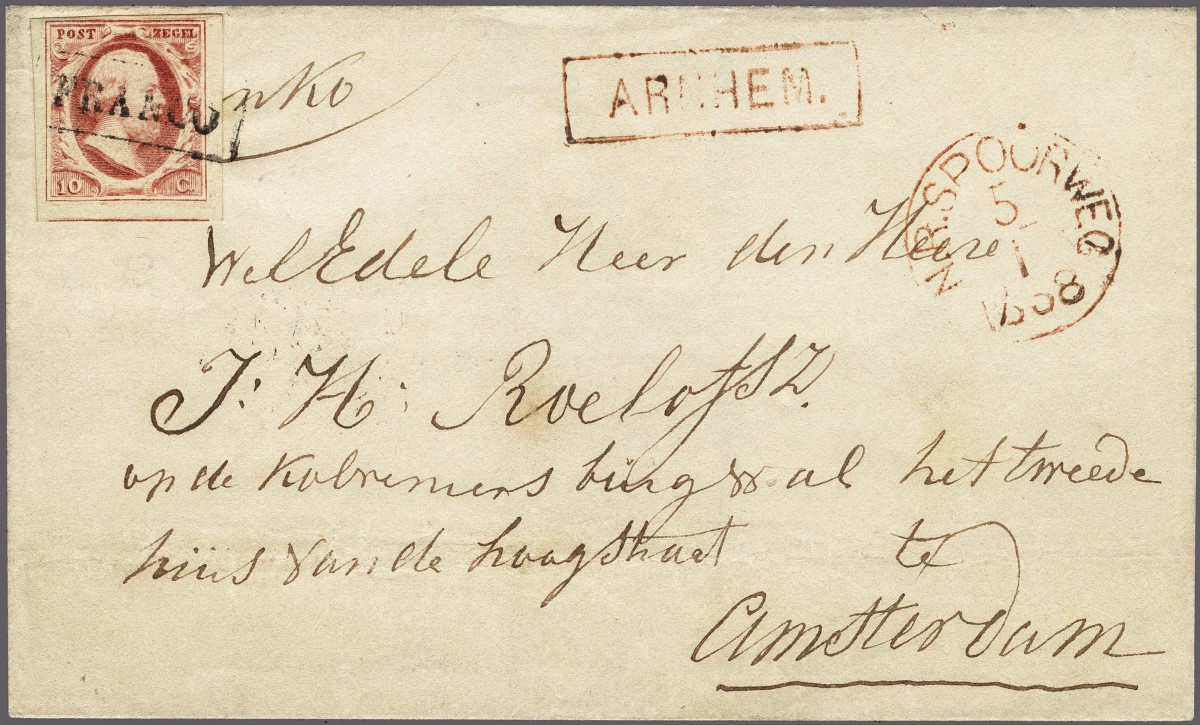 POST ZEGEL
FRANCO
10 C
nko
ARNHEM.
N.R.SPOORWEG
5
1
1858
WelEdele Heer den Heere
J: H: RoelofsZ.
op de Kolveniers burgwal het tweede
huis van de hoogstraat te
Amsterdam